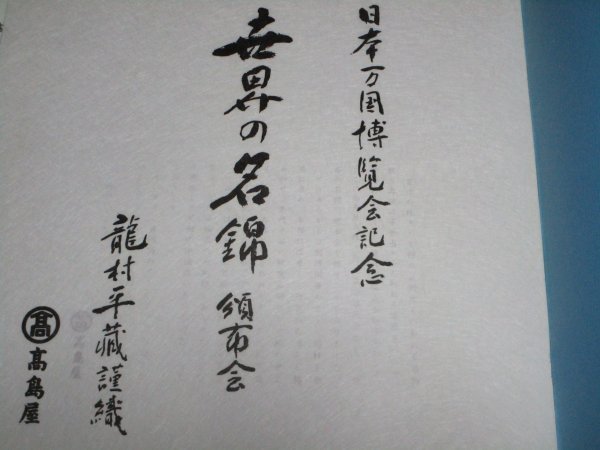 日本万国博覧会記念
世界の名錦 頒布会
龍村平藏謹織
髙 髙島屋